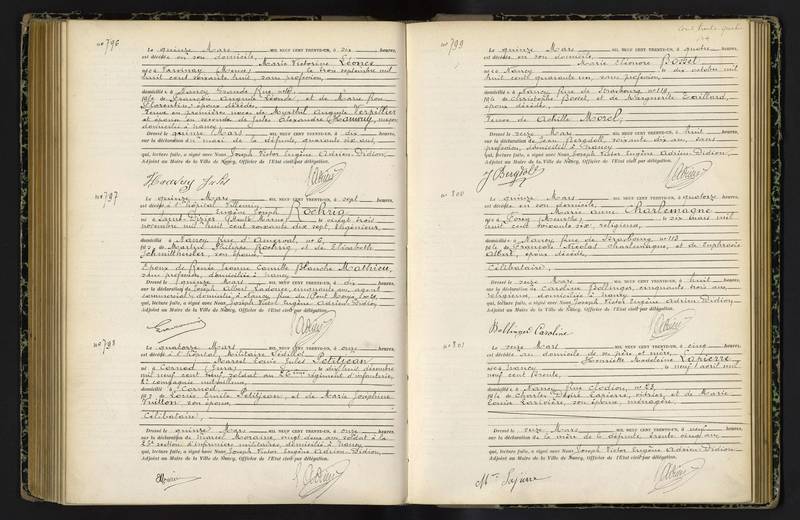 Nº 796
Le quinze Mars MIL NEUF CENT TRENTE-UN, à six heures,
est décédée en son domicile,
Marie Victorine Léonce
née à (Meuse), le trois septembre mil
huit cent soixante huit, sans profession,
domiciliée à Nancy, Grande Rue,
fille de François Auguste Léonce, et de Marie Rose
Florentin, époux décédés.
Veuve en première noces de Auguste Verpillier
et épouse en seconde de Jules Alexandre
domiciliés à Nancy.
Dressé le quinze Mars MIL NEUF CENT TRENTE-UN, à dix heures,
sur la déclaration du mari de la défunte, quarante six ans,
qui, lecture faite, a signé avec Nous, Joseph Victor Eugène Adrien-Didion,
Adjoint au Maire de la Ville de Nancy, Officier de l'Etat civil par délégation.
Nº 797
Le quinze Mars MIL NEUF CENT TRENTE-UN, à sept heures,
est décédé à l'hôpital Villemin,
Eugène Joseph Roehrig
né à Saint-Dizier (Haute Marne), le vingt trois
novembre mil huit cent soixante dix sept, Ingénieur,
domicilié à Nancy, Rue d'Amerval, nº 6,
fils de Martin Philippe Roehrig et de Elisabeth
son épouse,
Epoux de Renée Jeanne Camille Blanche Mathieu,
sans profession, domiciliée à Nancy.
Dressé le quinze Mars MIL NEUF CENT TRENTE-UN, à dix heures,
sur la déclaration de Joseph Albert Ladorce, cinquante ans, agent
commercial, domicilié à Nancy, Rue du
qui, lecture faite, a signé avec Nous, Joseph Victor Eugène Adrien-Didion,
Adjoint au Maire de la Ville de Nancy, Officier de l'Etat civil par délégation.
Nº 798
Le quatorze Mars MIL NEUF CENT TRENTE-UN, à onze heures,
est décédé à l'hôpital Militaire Sédillot,
Marcel Louis Jules Petitjean
né à Cornod (Jura), le dix huit décembre
mil neuf cent neuf, soldat au 26ème régiment d'infanterie,
compagnie
domicilié à Cornod,
fils de Louis Emile Petitjean, et de Marie Joséphine
Vuitton, son épouse,
Célibataire,
Dressé le quinze Mars MIL NEUF CENT TRENTE-UN, à onze heures,
sur la déclaration de Marcel Moraine, vingt deux ans, soldat à la
section d'infirmiers militaires, domicilié à Nancy,
qui, lecture faite, a signé avec Nous, Joseph Victor Eugène Adrien-Didion,
Adjoint au Maire de la Ville de Nancy, Officier de l'Etat civil par délégation.
Cent trente quatre
134
Nº 799
Le quinze Mars MIL NEUF CENT TRENTE-UN, à quatre heures,
est décédée en son domicile,
Marie Eléonore Bossel
née à Nancy, le dix octobre mil
huit cent quarante un, sans profession,
domiciliée à Nancy, Rue de Strasbourg nº 119,
fille de Christophe Bossel, et de Marguerite Taillard,
époux décédés,
Veuve de Achille Morel,
Dressé le seize Mars MIL NEUF CENT TRENTE-UN, à huit heures,
sur la déclaration de Jean Bergdoll, soixante dix ans, sans
profession, domicilié à Nancy,
qui, lecture faite, a signé avec Nous, Joseph Victor Eugène Adrien-Didion,
Adjoint au Maire de la Ville de Nancy, Officier de l'Etat civil par délégation.
J Bergdoll
Nº 800
Le quinze Mars MIL NEUF CENT TRENTE-UN, à quatorze heures,
est décédée en son domicile,
Marie Anne Charlemagne
née à (Meurthe), le six mars mil
huit cent soixante six, religieuse,
domiciliée à Nancy, Rue de Strasbourg nº 113
fille de François Nicolas Charlemagne, et de Euphrosie
Albert, époux décédés,
Célibataire,
Dressé le seize Mars MIL NEUF CENT TRENTE-UN, à huit heures,
sur la déclaration de Caroline Bollinger, cinquante trois ans,
religieuse, domiciliée à Nancy,
qui, lecture faite, a signé avec Nous, Joseph Victor Eugène Adrien-Didion,
Adjoint au Maire de la Ville de Nancy, Officier de l'Etat civil par délégation.
Bollinger Caroline
Nº 801
Le seize Mars MIL NEUF CENT TRENTE-UN, à cinq heures,
est décédée au domicile de ses père et mère,
Henriette Madeleine Lapierre
née à Nancy, le neuf avril mil
neuf cent trente,
domiciliée à Nancy, Rue Clodion, nº 23,
fille de Charles Désiré Lapierre, vitrier, et de Marie
Louise Larivière, son épouse, ménagère,
Dressé le seize Mars MIL NEUF CENT TRENTE-UN, à neuf heures,
sur la déclaration de la mère de la défunte, trente cinq ans
qui, lecture faite, a signé avec Nous, Joseph Victor Eugène Adrien-Didion,
Adjoint au Maire de la Ville de Nancy, Officier de l'Etat civil par délégation.
Mme Lapierre